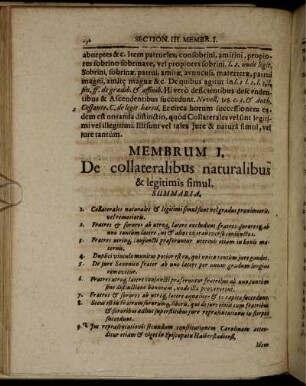 SECTION. III. MEMBR. I.
abneptes &c. Item patrueles, consobrini, amitini, propio-
res sobrino sobrinave, vel propiores sobrini. l. 1. unde legit.
Sobrini, sobrinæ, patrui, amitæ, avunculi, materteræ, patrui
magni, amitæ magnæ &c.
fin. ff. de gradib. & affinib. Hi verò descendentibus descenden-
tibus & Ascendentibus succedunt. Novell. 118. c. 3. & Auth.
Cessante. C. de legit. hæred. Et circa horum successionem ea-
dem est notanda distinctio, quòd Collaterales vel sunt legiti-
mi vel illegitimi. Illi sunt vel tales jure & naturâ simul, vel
jure tantùm.
MEMBRUM I.
De collateralibus naturalibus
& legitimis simul.
SUMMARIA.
1. Collaterales naturales & legitimi simul sunt vel gradus proximioris
vel remotioris.
2. Fratres & sorores ab utroq; latere excludunt fratres sorores q; ab
uno tantùm latere, ut & alios in transversa
3. Fratres utrinq; conjuncti præferuntur uterinis etiam in bonis ma-
ternis.
4. Duplici vinculo munitus potior est eo, qui unico tantùm jure gaudet.
5. De jure Saxonico frater ab uno latere per unum gradum longius
removetur.
6. Fratres utroq; latere conjuncti præferuntur fratribus ab uno tantùm
sine distinctione bonorum, unde illa provenerint.
7. Fratres & sorores ab utroq; latere æqualiter & in capita succedunt.
8. Etiam si cum
& sororibus adhuc superstitibus jure repræsentationis in stirpes
succedunt.
9. Jus repræsentationis secundum constitutionem Carolinam atten-
ditur etiam & viget in Episcopatu Halberstadiensi.
Idem